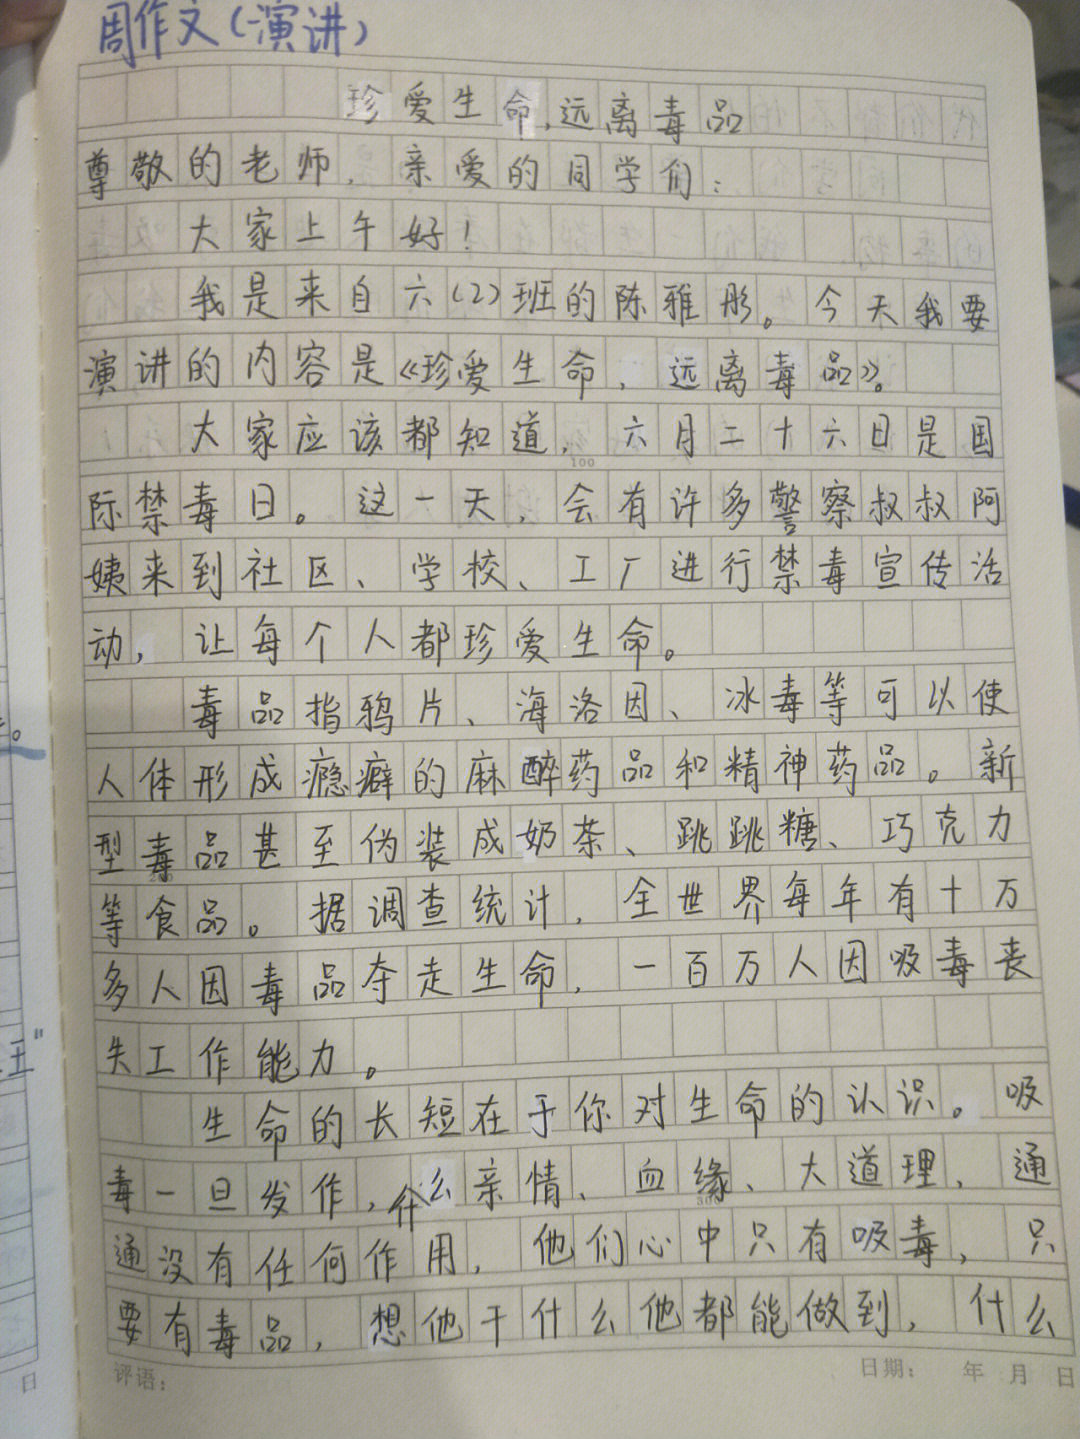 周作文(演讲)
珍爱生命,远离毒品
尊敬的老师,亲爱的同学们:
大家上午好!
我是来自六(2)班的陈雅彤。今天我要
演讲的内容是《珍爱生命,远离毒品》。
大家应该都知道,六月二十六日是国
100
际禁毒日。这一天,会有许多警察叔叔阿
姨来到社区、学校、工厂进行禁毒宣传活
动,让每个人都珍爱生命。
毒品指鸦片、海洛因、冰毒等可以使
人体形成瘾癖的麻醉药品和精神药品。新
型毒品甚至伪装成奶茶、跳跳糖、巧克力
200
等食品。据调查统计,全世界每年有十万
多人因毒品夺走生命,一百万人因吸毒丧
失工作能力。
生命的长短在于你对生命的认识。吸
毒一旦发作,什么亲情、血缘、大道理,通
300
通没有任何作用,他们心中只有吸毒,只
要有毒品,想他干什么他都能做到,什么
评语: 日期: 年 月 日